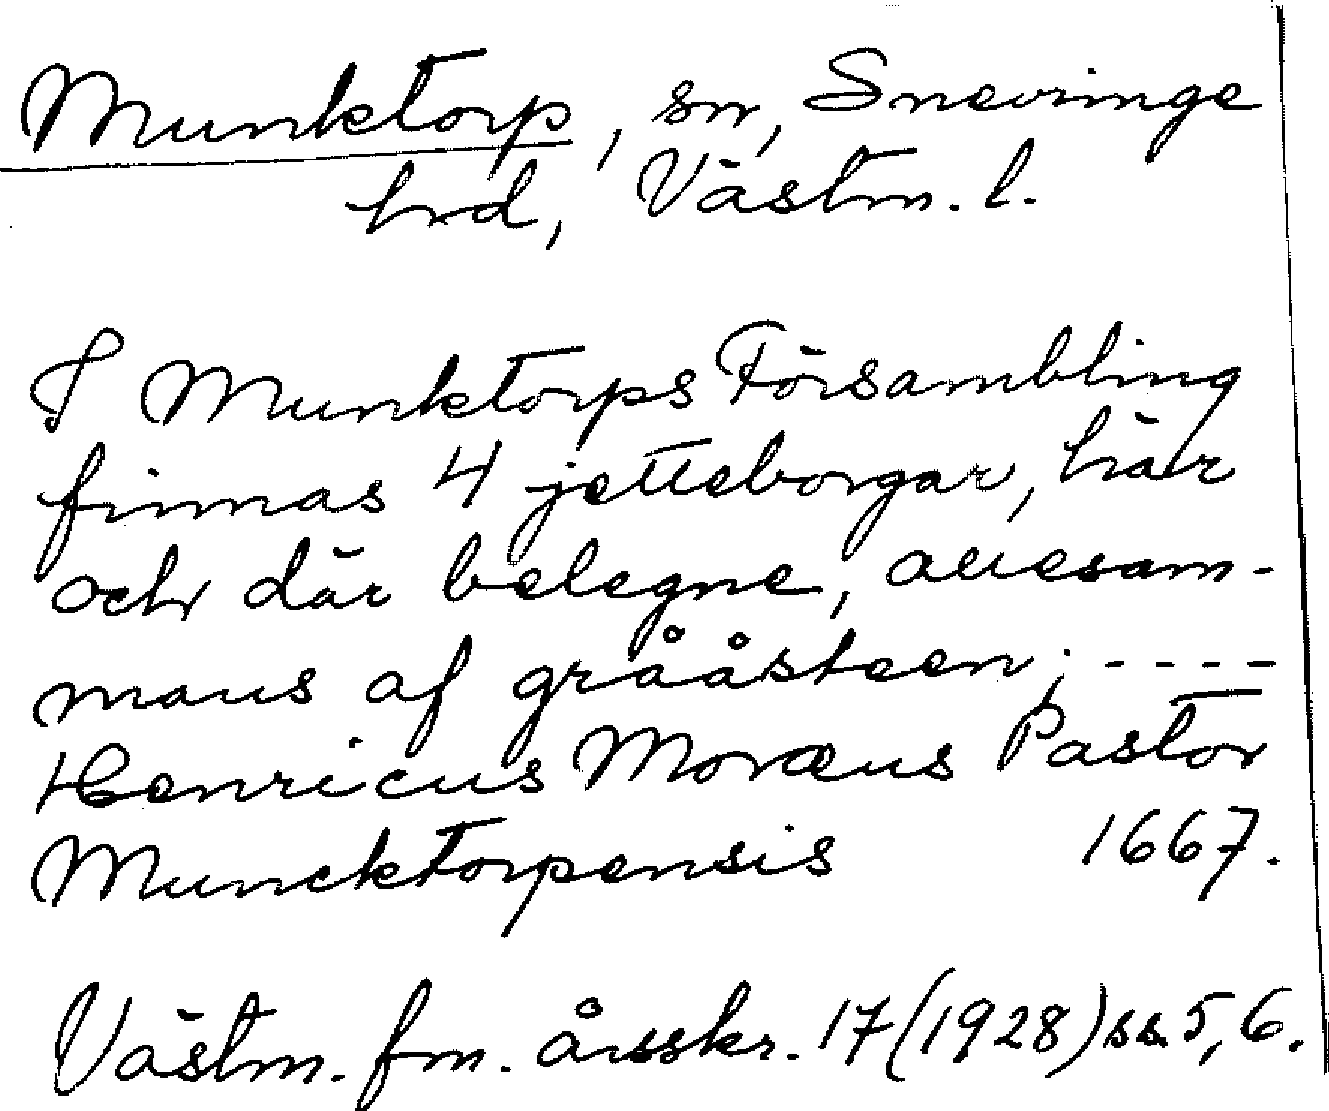 Munktorp, sn, Snevringe
hrd, Västm. l.
I Munktorps Försambling
finnas 4 jetteborgar, här
och där belegne, allesam-
mans af grååsteen; ----
Henricus Moræus Pastor
Muncktorpensis 1667.
Västm. fm. årsskr. 17 (1928) ss. 5, 6.